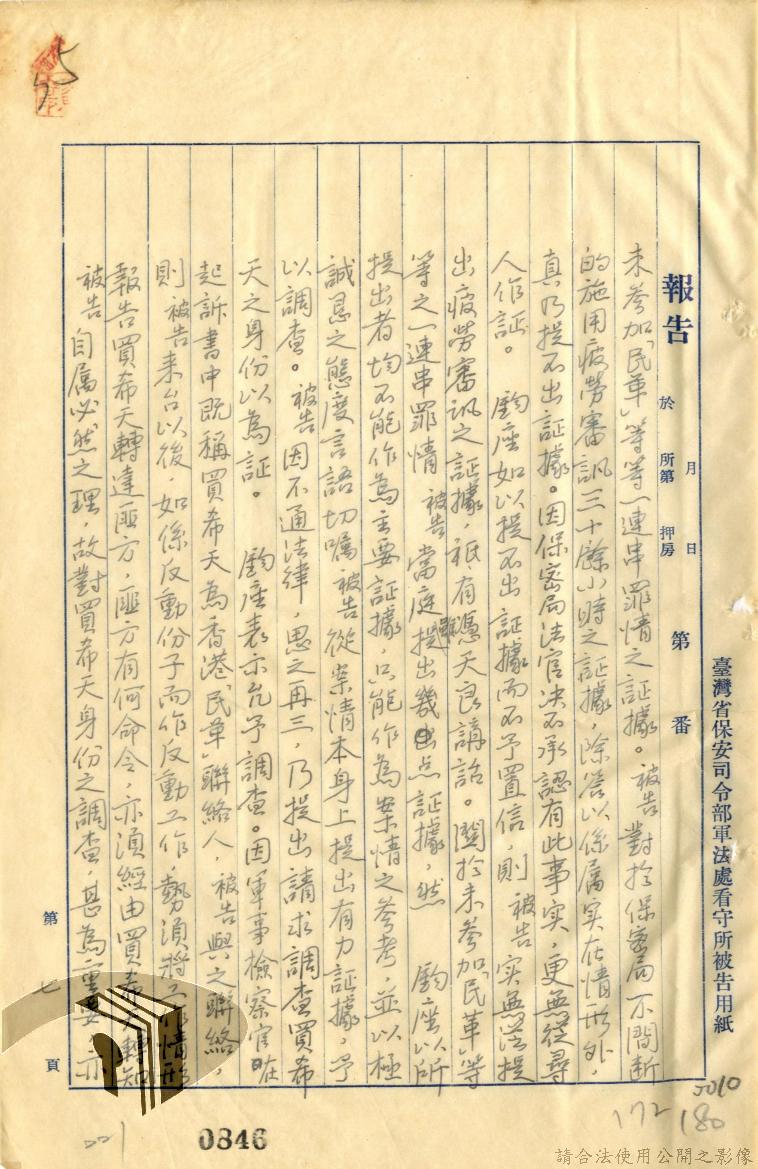 臺灣省保安司令部軍法處看守所被告用紙
報告 於 所第 押房 月 日 第 番
未參加「民革」等等一連串罪情之証據。被告對於保密局不間断
的施用疲勞審訊三十餘小時之証據,除答以係属实在情形外,
真乃提不出証據。因保密局法官决不承認有此事实,更無從尋
人作証。 鈞座如以提不出証據而不予置信,則 被告实無法提
出疲勞審訊之証據,祇有憑天良講話。關於未參加「民革」等
等之一連串罪情 被告當庭雖提出幾点証據,然 鈞座以所
提出者均不能作為主要証據,只能作為案情之參考,並以極
誠恳之態度言語切囑被告從案情本身上提出有力証據,予
以調查。被告因不通法律,思之再三,乃提出請求調查買希
天之身份以為証。 鈞座表示允予調查。因軍事檢察官在
起訴書中既稱買希天為香港「民革」聯絡人,被告與之聯絡,
則被告来台以後,如係反動份子而作反動工作,勢須將工作情形
報告買希天轉達匪方,匪方有何命令,亦須經由買希天轉知
被告 自属必然之理,故對買希天身份之調查,甚為重要 亦
第 七 頁
0846
172
180
5010
221
請合法使用公開之影像